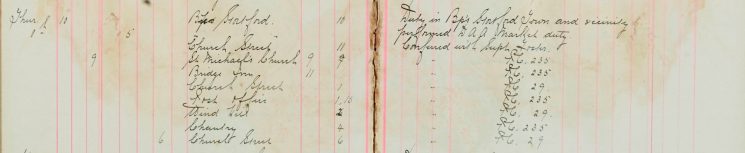 Thur 10 Bp's Stortford. 10 Duty in Bp's Stortford Town and vicinity
5 performed 2 A.A. Market duty
Church Street 11 Conferred with Supt.
9 St Michael's Church 9 9 " P.C. 235
Bridge Inn 11 " P.C. 235
Church Street 1 " P.C. 29
Post Office 1.15 " P.C. 235
Wind Hill 2 " P.C. 29
Chantry 4 " P.C. 235
6 Church Street 6 " P.C. 29